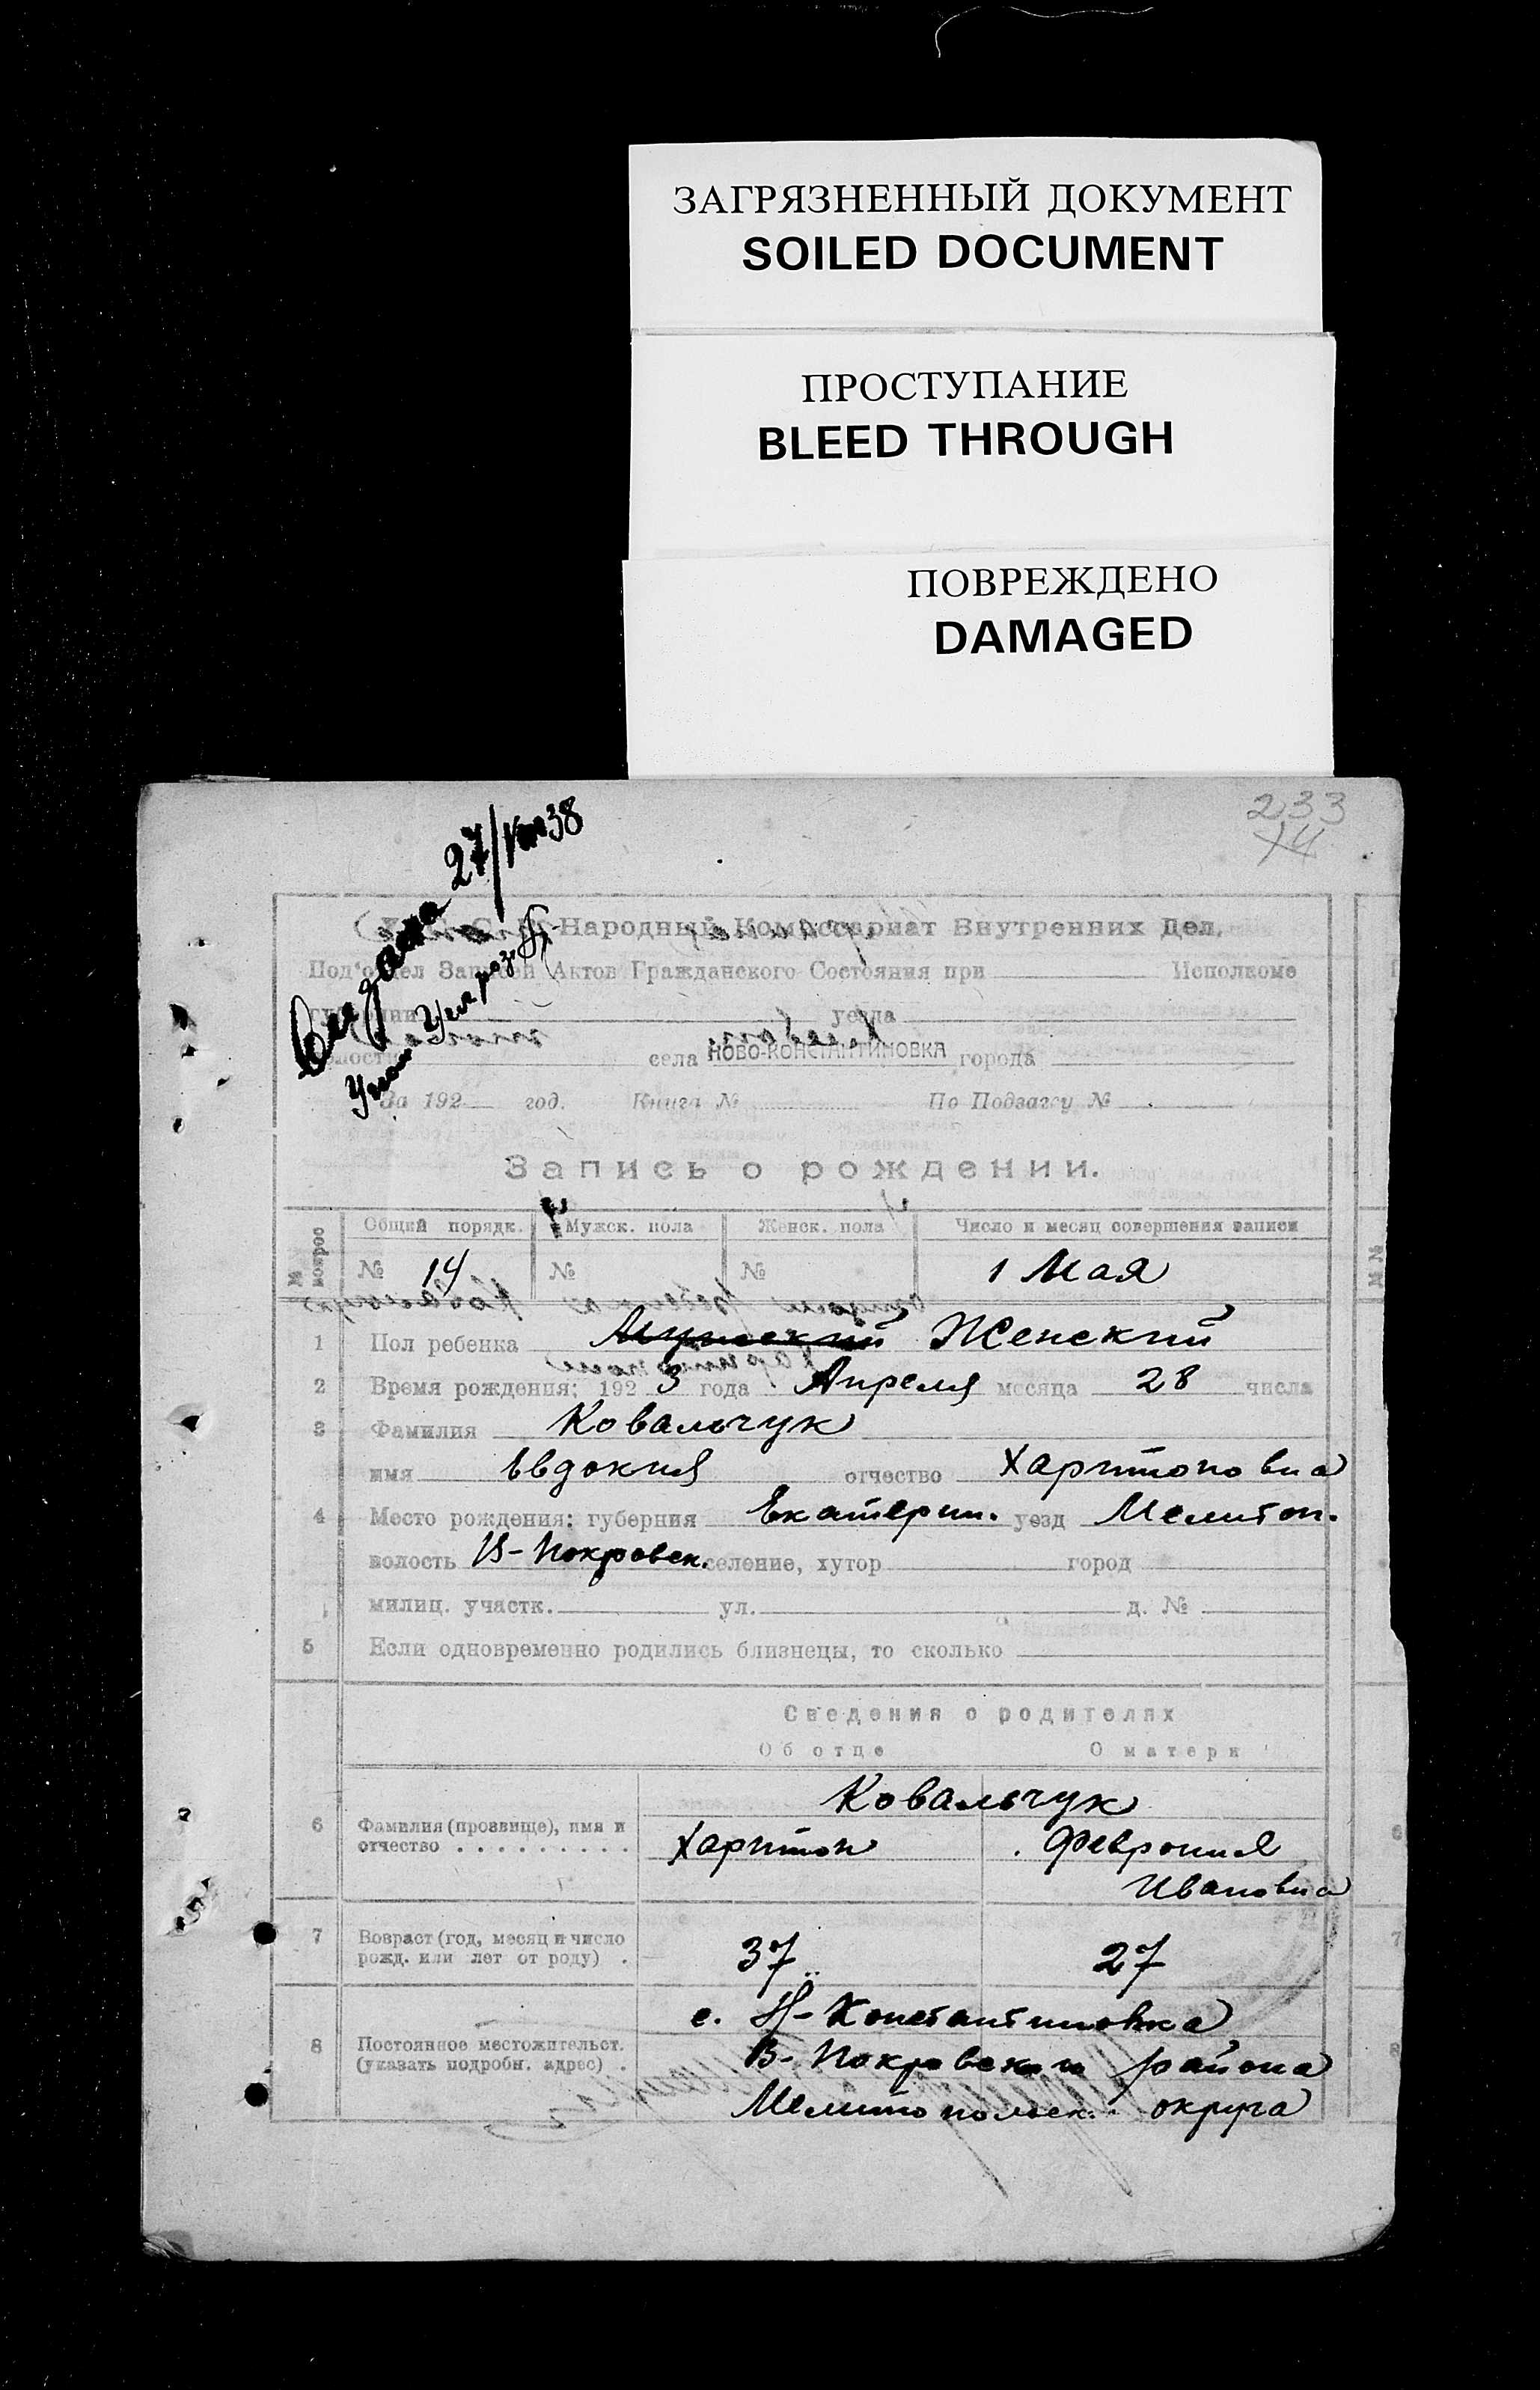 ЗАГРЯЗНЕННЫЙ ДОКУМЕНТ
SOILED DOCUMENT
ПРОСТУПАНИЕ
BLEED THROUGH
ПОВРЕЖДЕНО
DAMAGED
233
14
Выдана 27/
38
Народный Комиссариат Внутренних Дел.
Под'отдел Записей Актов Гражданского Состояния при Исполкоме
губернии уезда
волости села НОВО-КОНСТАНТИНОВКА города
За 192 год. Книга № По Подзагсу №
Запись о рождении.
№ вопрос Общий порядк. Мужск. пола Женск. пола Число и месяц совершения записи
№ 14 № № 1 Мая
1 Пол ребенка Мужский Женский
2 Время рождения: 192 3 года Апреля месяца 28 числа
3 Фамилия Ковальчук
имя Евдокия отчество Харитоновна
4 Место рождения: губерния Екатерин. уезд Мелитоп.
волость В-Покровск. селение, хутор город
милиц. участк. ул. д. №
5 Если одновременно родились близнецы, то сколько
Сведения о родителях
Об отце О матери
Ковальчук
6 Фамилия (прозвище), имя и
отчество Харитон Феврония
Ивановна
7 Возраст (год, месяц и число
рожд. или лет от роду) 37 27
с. Н-Константиновка
8 Постоянное местожительст.
(указать подробн. адрес) В-Покровского района
Мелитопольск. округа